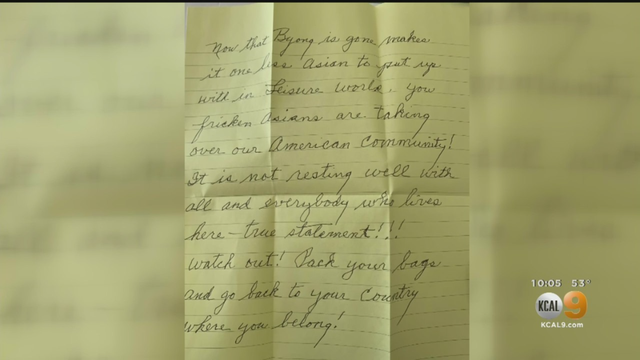 Now that Byong is gone makes
it one less Asian to put up
will in Leisure World. You
fricken Asians are taking
over our American Community!
It is not resting well with
all and everybody who lives
here - true statement!!!
Watch out! Pack your bags
and go back to your Country
where you belong!
10:05 53°
KCAL 9
KCAL9.com